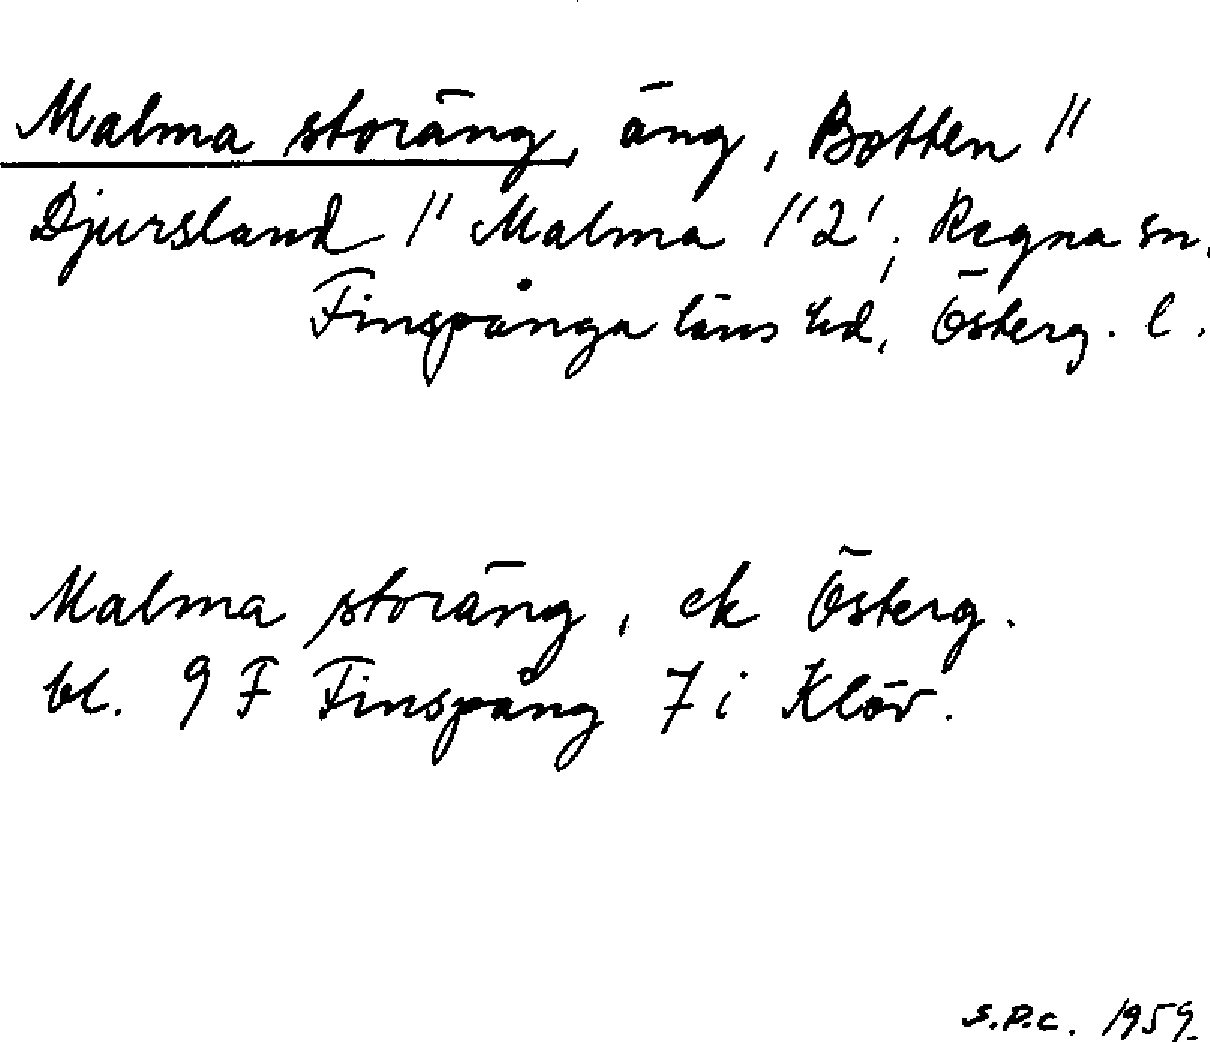 Malma storäng, äng, Botten 1"
Djursland 1" Malma 1'2', Regna sn,
Finspånga läns hd, Österg. l.
Malma storäng, ek Österg.
bl. 9 F Finspång 7 i Klöv.
S.P.C. 1959.